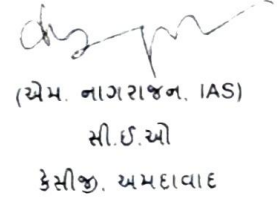 (એમ. નાગરાજન, IAS)
સી.ઈ.ઓ
કેસીજી. અમદાવાદ